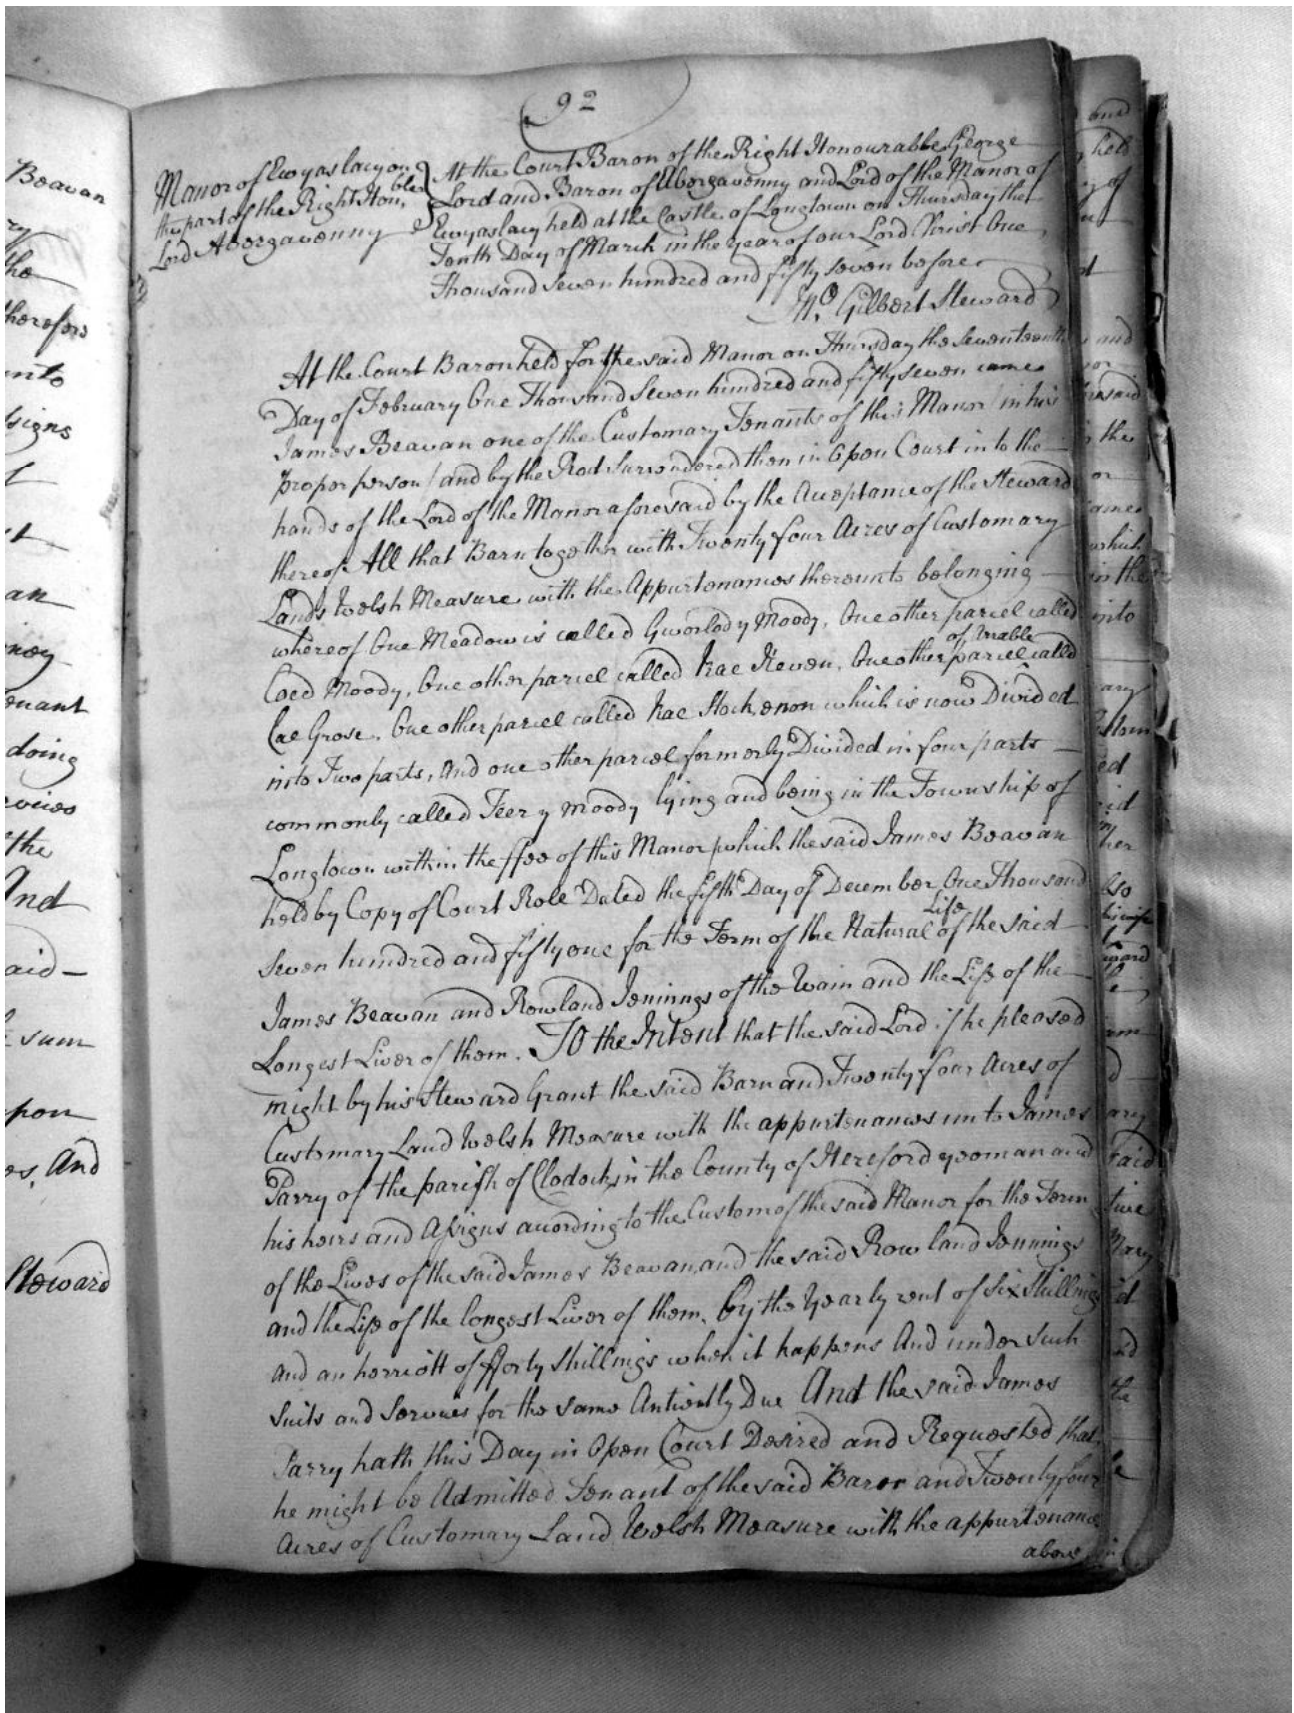 92
Manor of Ewyaslacy on
the part of the Right Hon.ble
Lord Abergavenny
At the Court Baron of the Right Honourable George
Lord and Baron of Abergavenny and Lord of the Manor of
Ewyaslacy held at the Castle of Longtown on Thursday the
Tenth Day of March in the year of our Lord Christ One
Thousand Seven hundred and fifty seven before
Gilbert Steward
At the Court Baron held for the said Manor on Thursday the Seventeenth
Day of February One Thousand Seven hundred and fifty seven came
James Beavan one of the Customary Tenants of this Manor (in his
proper person) and by the Rod Surrendered then in Open Court in to the
hands of the Lord of the Manor aforesaid by the Acceptance of the Steward
thereof All that Barn together with Twenty four Acres of Customary
Lands Welsh Measure with the Appurtenances thereunto belonging
whereof One Meadow is called Gworlod y Moody, One other parcel called
Coed Moody, One other parcel called Kae Keven, One other parcel of Arable called
Cae Grose, One other parcel called Kae Hock onon which is now Divided
into Two parts, And one other parcel formerly Divided in four parts
commonly called Teer y moody lying and being in the Township of
Longtown within the ffee of this Manor which the said James Beavan
held by Copy of Court Role Dated the fifth Day of December One Thousand
Seven hundred and fifty one for the Term of the Natural Life of the said
James Beavan and Rowland Jennings of the Wain and the Life of the
Longest Liver of them. TO the Intent that the said Lord if he pleased
might by his Steward Grant the said Barn and Twenty four Acres of
Customary Land Welsh Measure with the appurtenances unto James
Parry of the parish of Clodock in the County of Hereford yeoman and
his heirs and Assigns according to the Custom of the said Manor for the Term
of the Lives of the said James Beavan and the said Rowland Jennings
and the Life of the longest Liver of them, by the Yearly rent of Six Shillings
and an herriott of fforty Shillings when it happens And under such
Suits and Services for the same Antiently Due And the said James
Parry hath this Day in Open Court Desired and Requested that
he might be Admitted Tenant of the said Barn and Twenty four
Acres of Customary Land Welsh Measure with the appurtenances
above